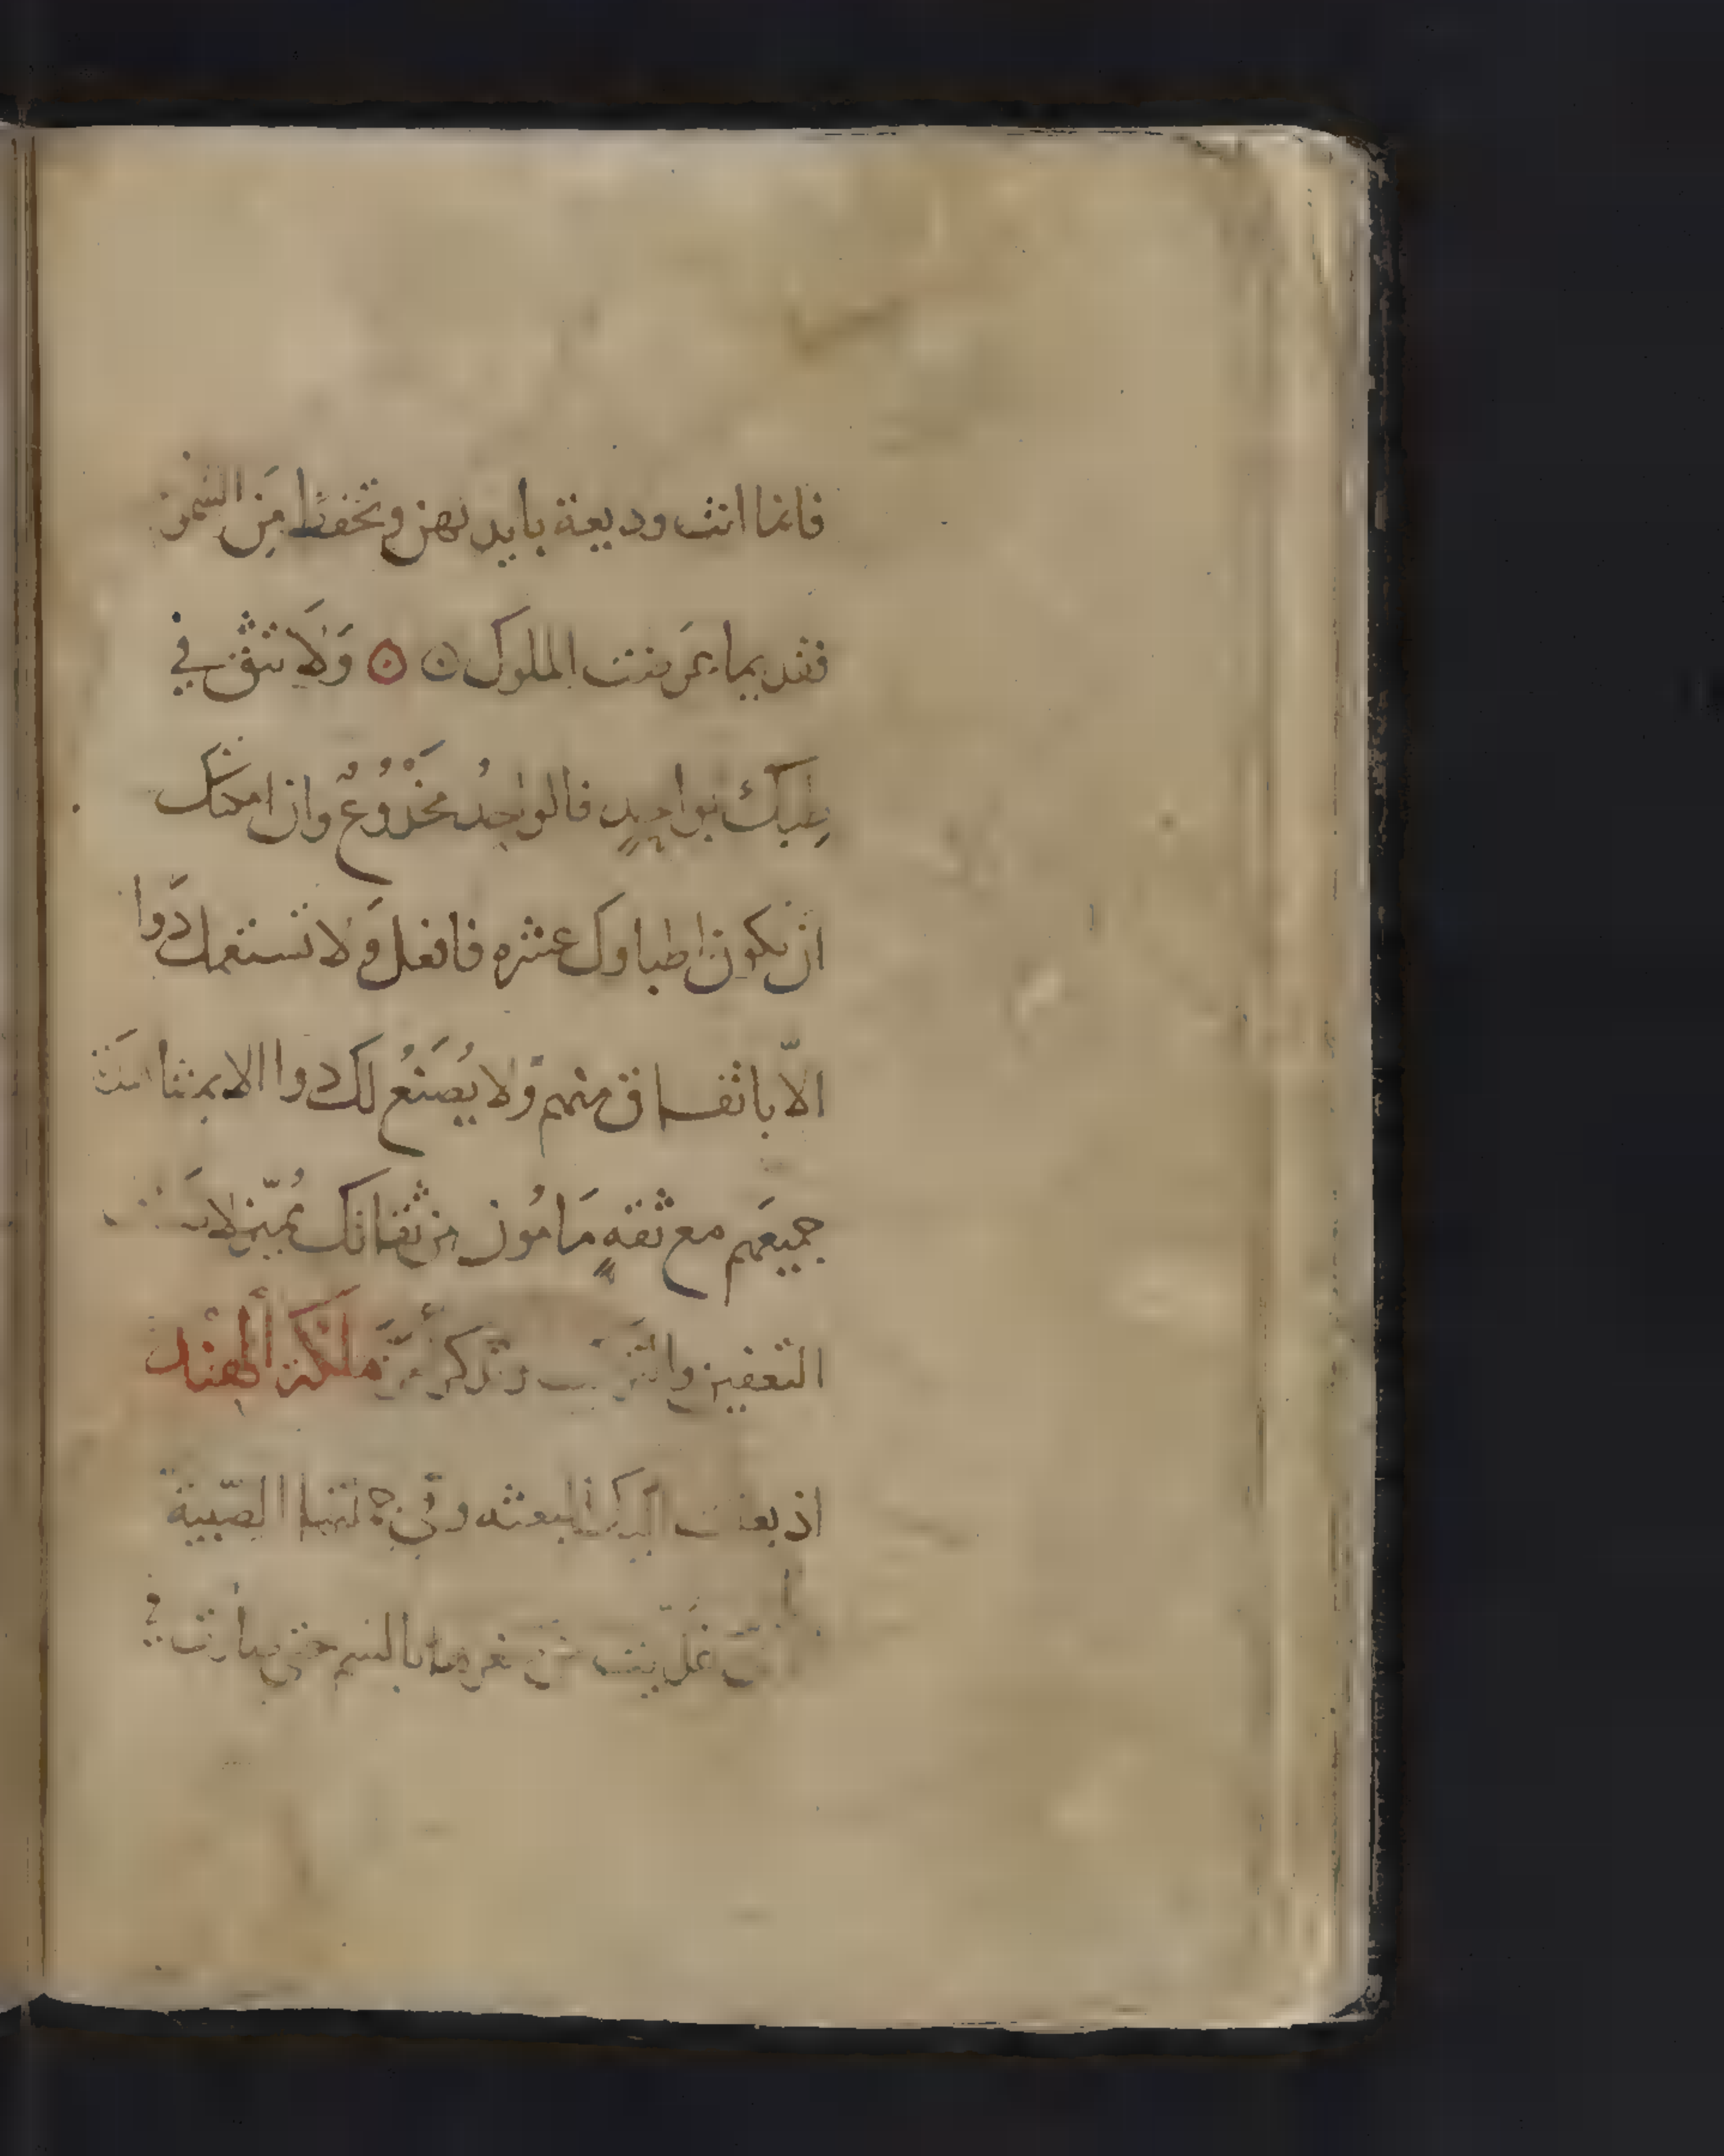 فانما انت وديعة بايديهن وتحفظ من السموم
فقديما عرضت الملوك ۞ ۞ وَلَا تثق في
طبكَ بواحدٍ فالواحدُ مخْدُوعٌ وان امكنك
ان يكون اطباوك عشره فافعل وَلا تستعمل دَوا
الاّ باتفاق منهم وَلا يُصنَعُ لك دوا الا بمشاهدة
جميعَهم مع ثقهٍ مَامُون من ثقاتك مُميّز لا
التعفين والتركيب وتذكر أمرَ مَلكَة ألهنْد
اذ بعثت اليك بما بعثته وفي جملتها الصّبية
التي غذّيت من صغرها بالسم حتى صارت في